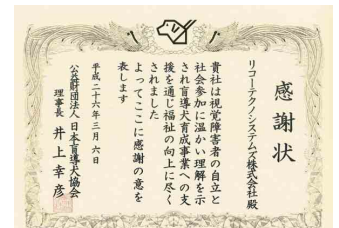 感謝状
リコーテクノシステムズ株式会社殿
貴社は視覚障害者の自立と
社会参加に温かい理解を示
され盲導犬育成事業への支
援を通じ福祉の向上に尽く
されました
よってここに感謝の意を
表します
平成二十六年三月六日
公益財団法人日本盲導犬協会
理事長 井上幸彦